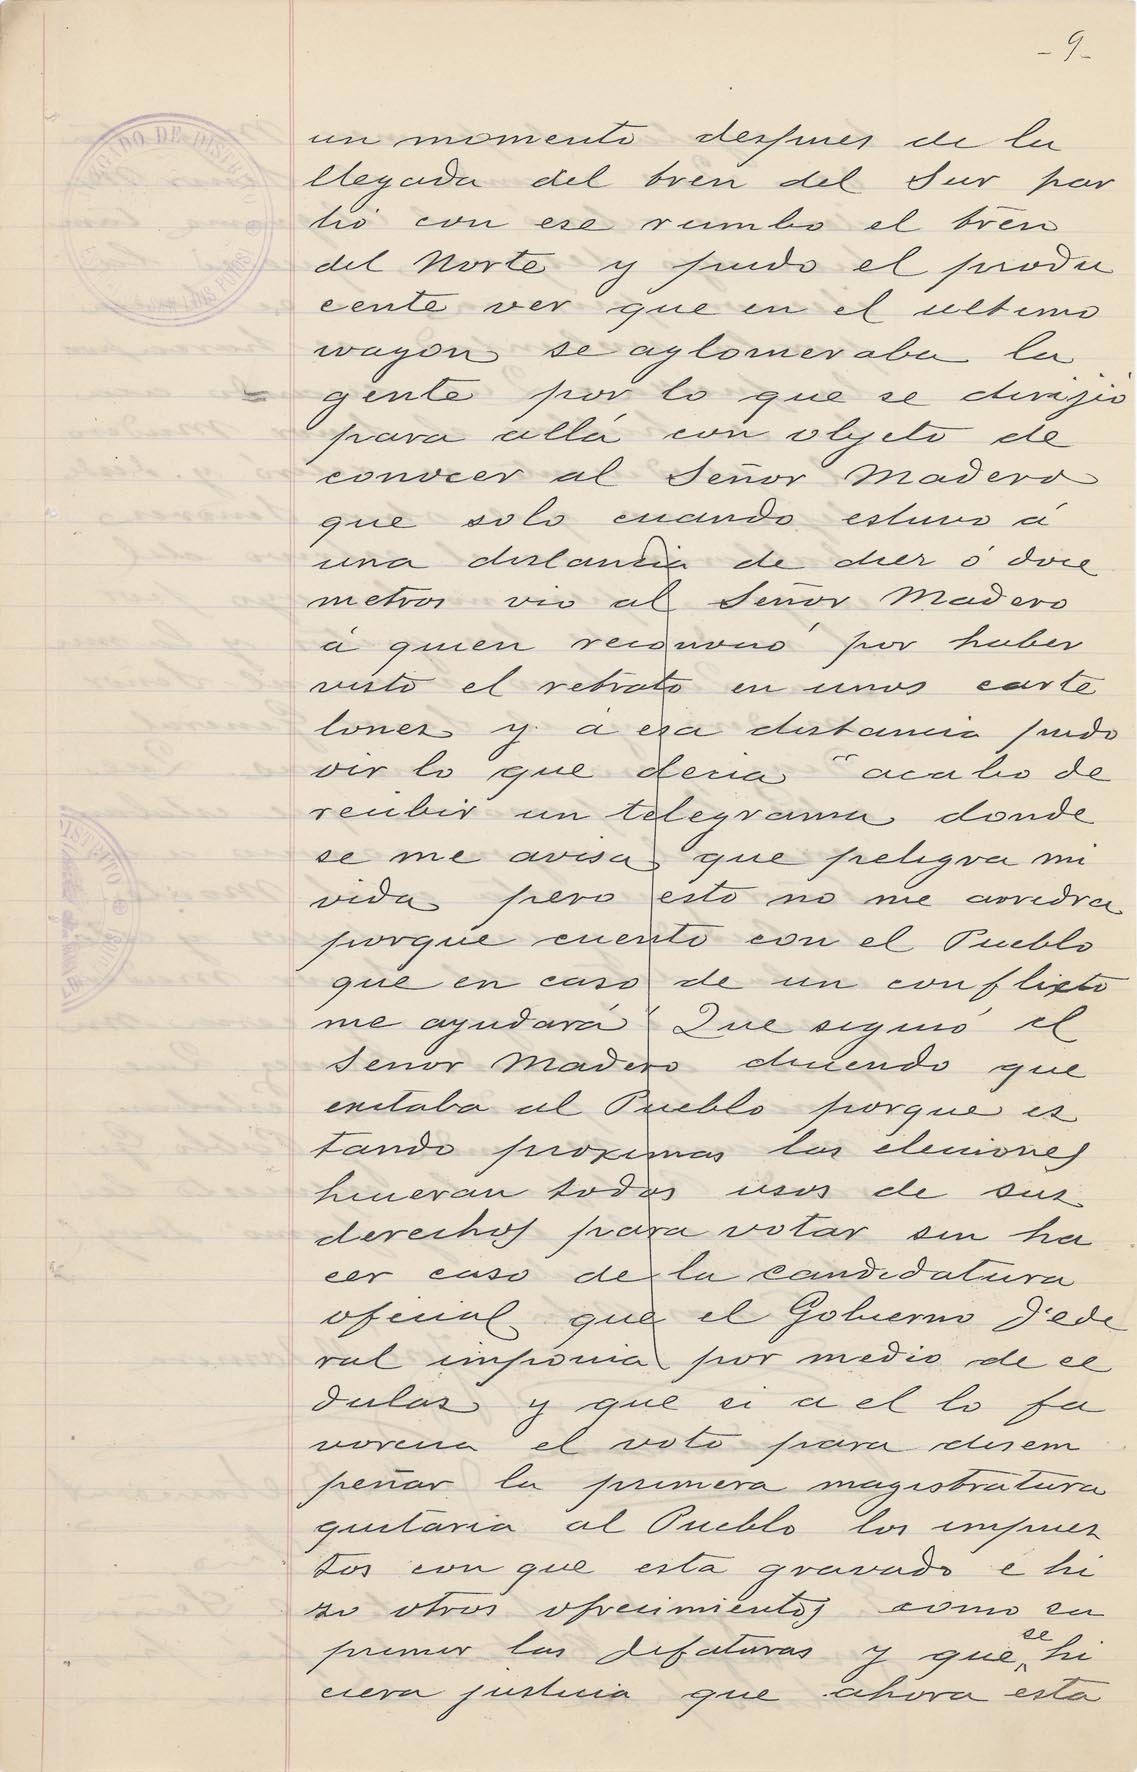 -9-
JUZGADO DE DISTRITO
SAN LUIS POTOSI
un momento despues de la
llegada del tren del Sur par
tió con ese rumbo el tren
del Norte y pudo el produ
cente ver que en el ultimo
wagon se aglomeraba la
gente por lo que se dirijió
para allá con objeto de
conocer al Señor Madero
que solo cuando estuvo á
una distancia de diez ó doce
metros vió al Señor Madero
á quien reconoció por haber
visto el retrato en unos carte
lones y á esa distancia pudo
oir lo que decia "acabo de
recibir un telegrama donde
se me avisa que peligra mi
vida pero esto no me arredra
porque cuento con el Pueblo
que en caso de un conflicto
me ayudará" Que siguió el
Señor Madero diciendo que
exitaba al Pueblo porque es
tando proximas las eleciones
hicieran todos usos de sus
derechos para votar sin ha
cer caso de la candidatura
oficial que el Gobierno Fede
ral imponia por medio de ce
dulas y que si a el lo fa
vorecia el voto para desem
peñar la primera magistratura
quitaria al Pueblo los impues
tos con que esta gravado e hi
zo otros ofrecimientos como su
primir las Jefaturas y que se hi
ciera justicia que ahora esta
DISTRITO